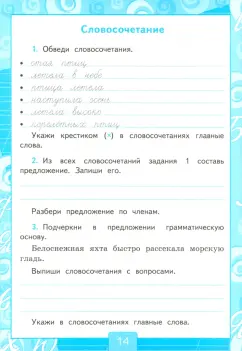 Словосочетание
1. Обведи словосочетания.
• стая птиц
• летела в небе
• птицы летела
• наступила осень
• летела высоко
• перелётных птиц
Укажи крестиком (×) в словосочетаниях главные
слова.
2. Из всех словосочетаний задания 1 составь
предложение. Запиши его.
Разбери предложение по членам.
3. Подчеркни в предложении грамматическую
основу.
Белоснежная яхта быстро рассекала морскую
гладь.
Выпиши словосочетания с вопросами.
Укажи в словосочетаниях главные слова.
14